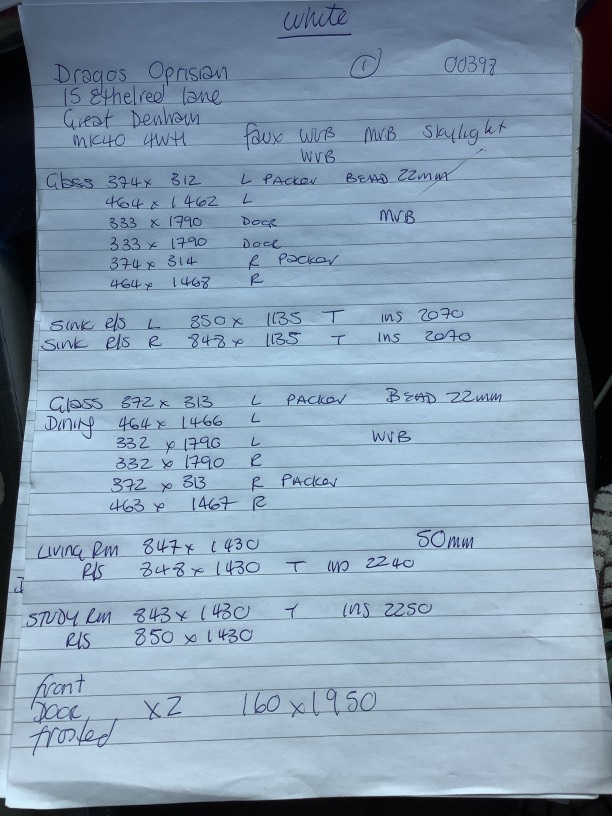 White
Dragos Oprisian 1 00398
15 Ethelred lane
Great Denham
MK40 4WH faux WVB MVB Skylight
WVB
Glass 374 x 312 L PACKER BEAD 22mm
464 x 1462 L
333 x 1790 DOOR MVB
333 x 1790 DOOR
374 x 314 R PACKER
464 x 1468 R
SINK R/S L 850 x 1135 T INS 2070
SINK R/S R 848 x 1135 T INS 2070
Glass 372 x 313 L PACKER BEAD 22mm
Dining 464 x 1466 L
332 x 1790 L WVB
332 x 1790 R
372 x 313 R PACKER
463 x 1467 R
LIVING RM 847 x 1430 50mm
R/S 848 x 1430 T INS 2240
STUDY RM 843 x 1430 T INS 2250
R/S 850 x 1430
front
Door x2 160 x 1950
frosted